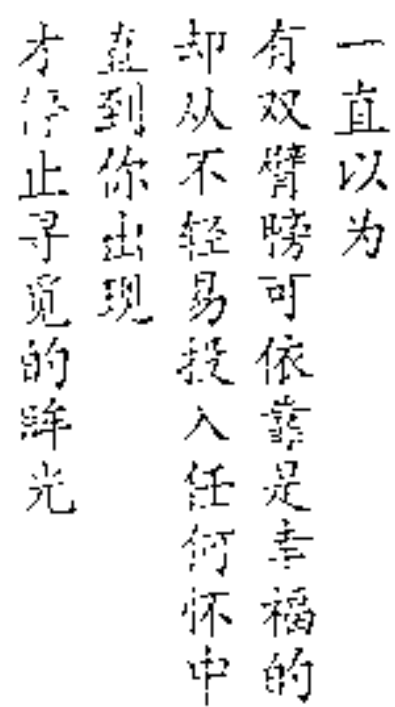 一直以为
有双臂膀可依靠是幸福的
却从不轻易投入任何怀中
直到你出现
才停止寻觅的眸光